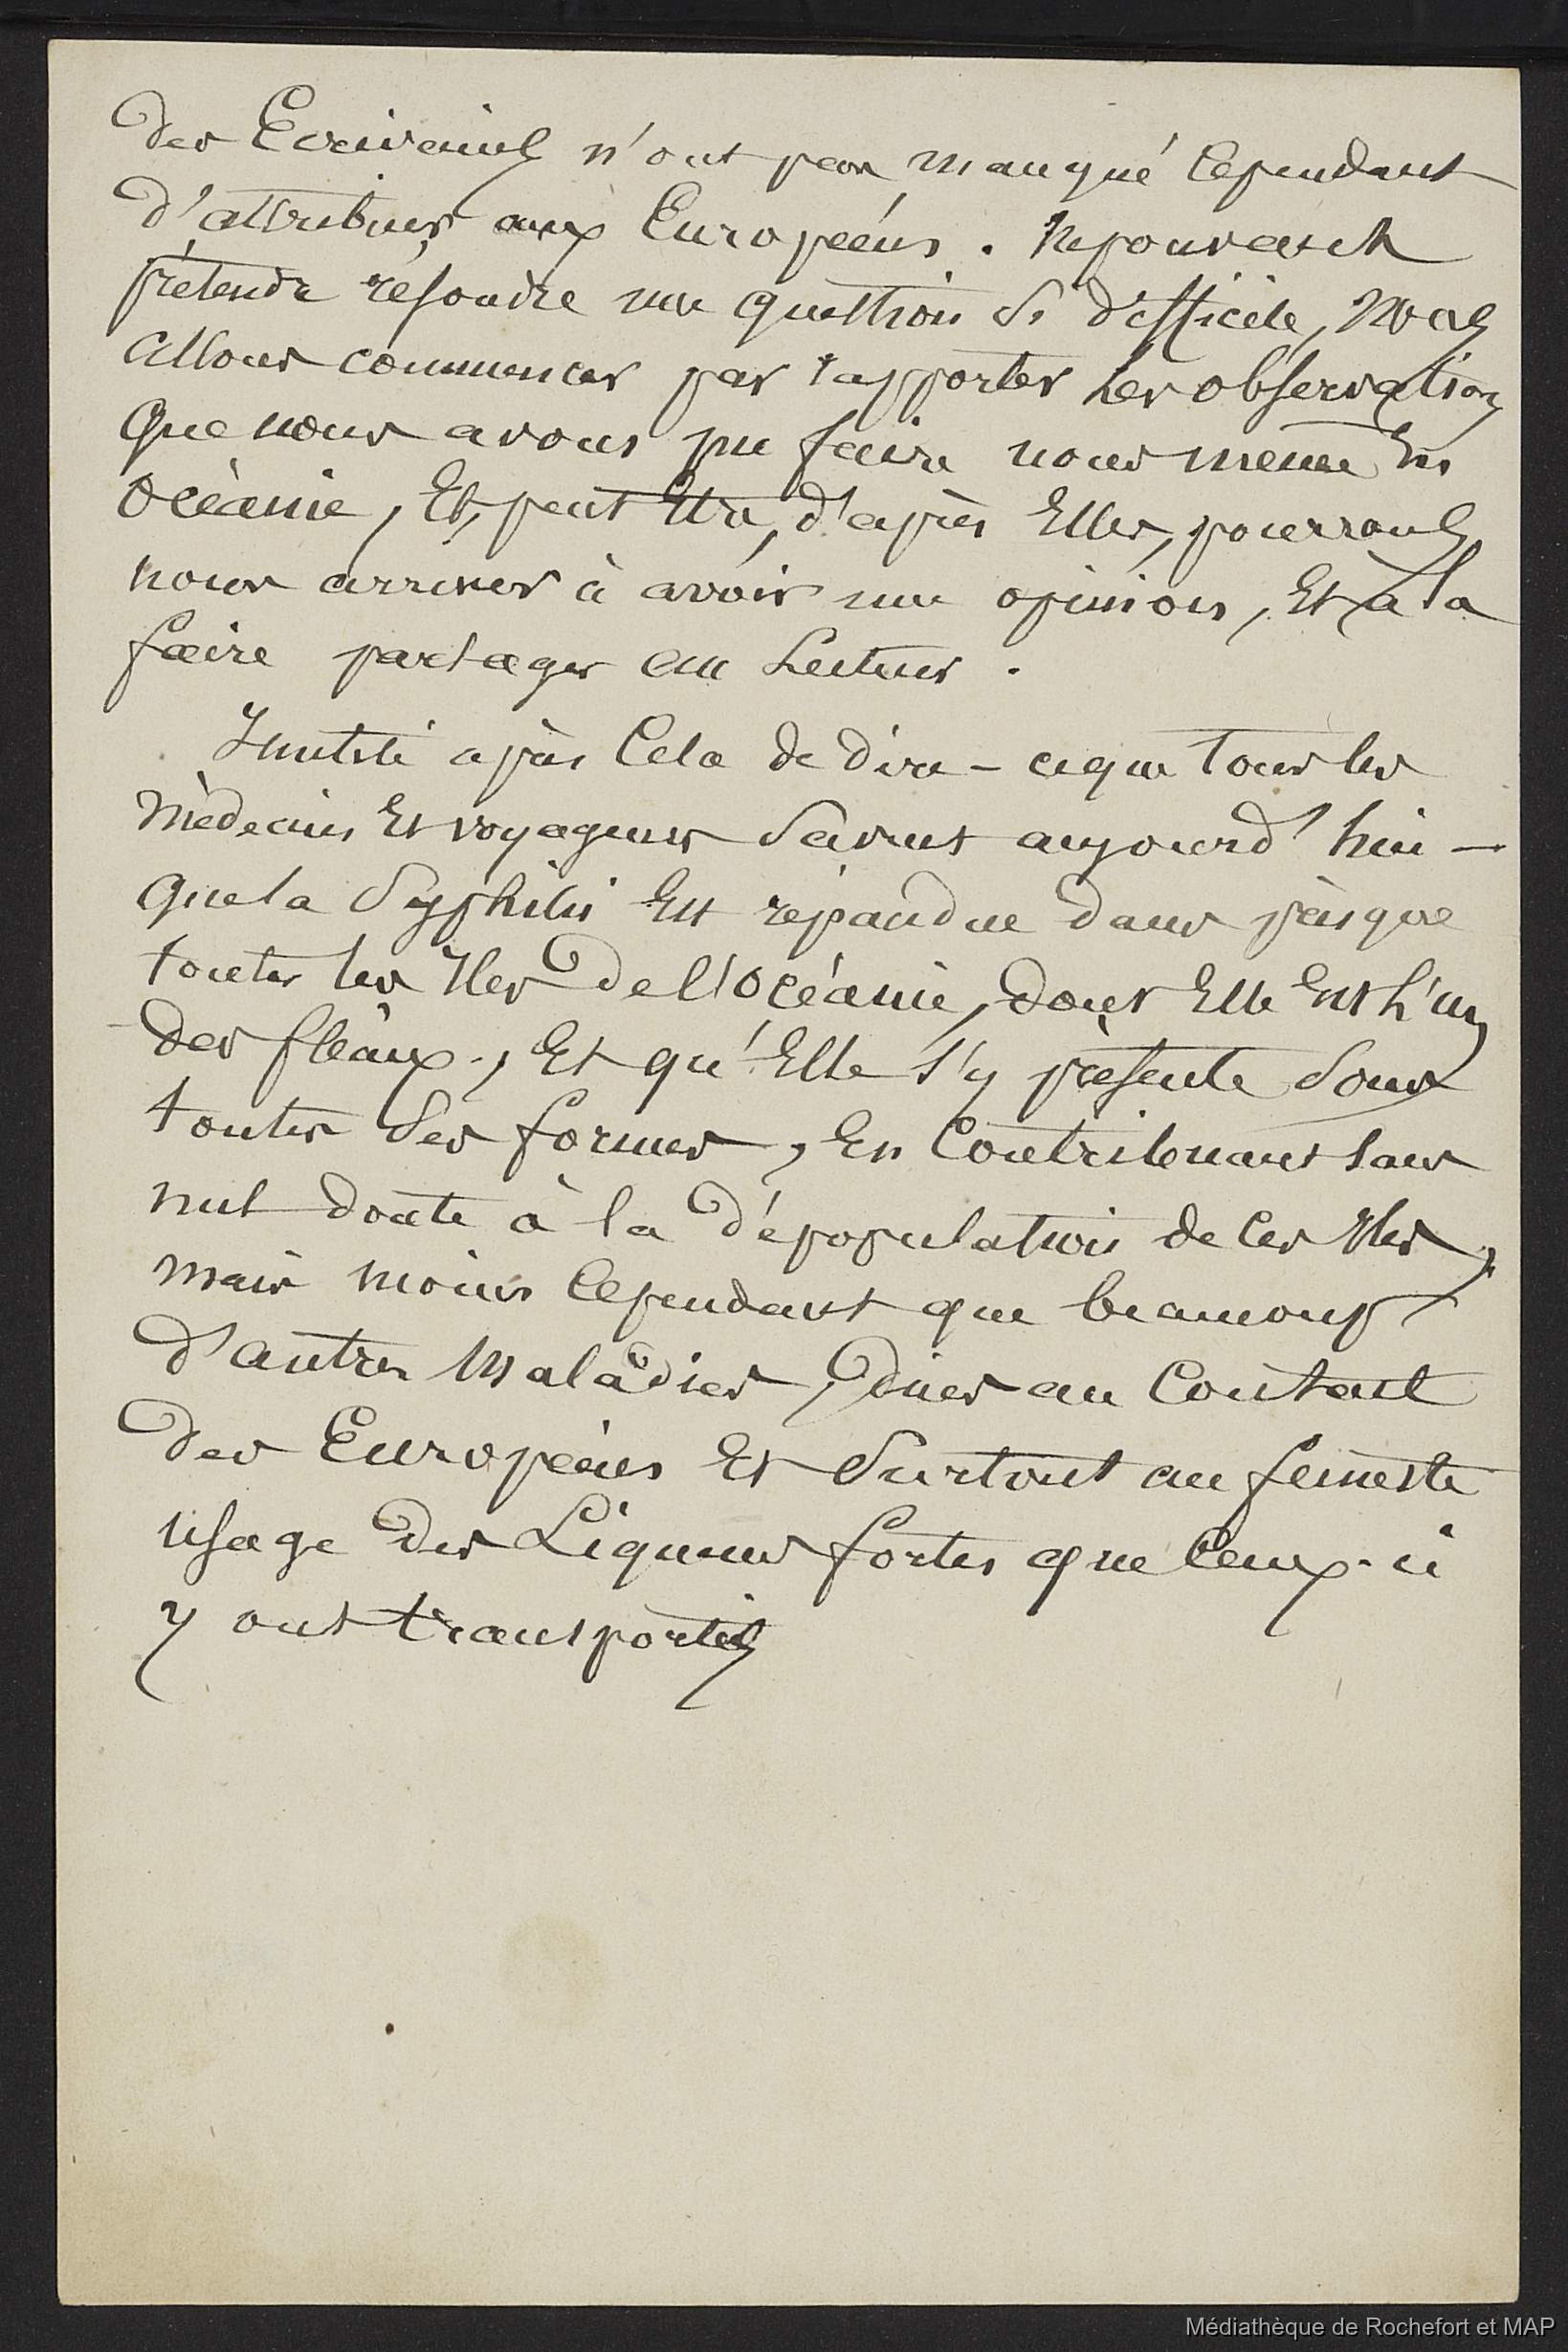 des Ecrivains n'ont pas manqué cependant
d'attribuer aux Européens. Ne pouvant
prétendre résoudre une question si difficile, nous
allons commencer par rapporter les observations
que nous avons pu faire nous même en
Océanie, Et, peut Etre, d'après Elles, pourrons
nous arriver à avoir une opinion, Et à la
faire partager au Lecteur.
Inutile après cela de dire – ce que tous les
Médecins Et voyageurs savent aujourd'hui –
que la Syphilis Est répandue dans presque
toutes les Iles de l'Océanie, dont Elle Est l'un
des fléaux, Et qu'Elle s'y présente sous
toutes ses formes, En contribuant sans
nul doute à la dépopulation de ces Iles,
mais moins cependant que beaucoup
d'autres Maladies, dues au Contact
des Européens Et surtout au funeste
usage des Liqueurs fortes que ceux-ci
y ont transportés
Médiathèque de Rochefort et MAP